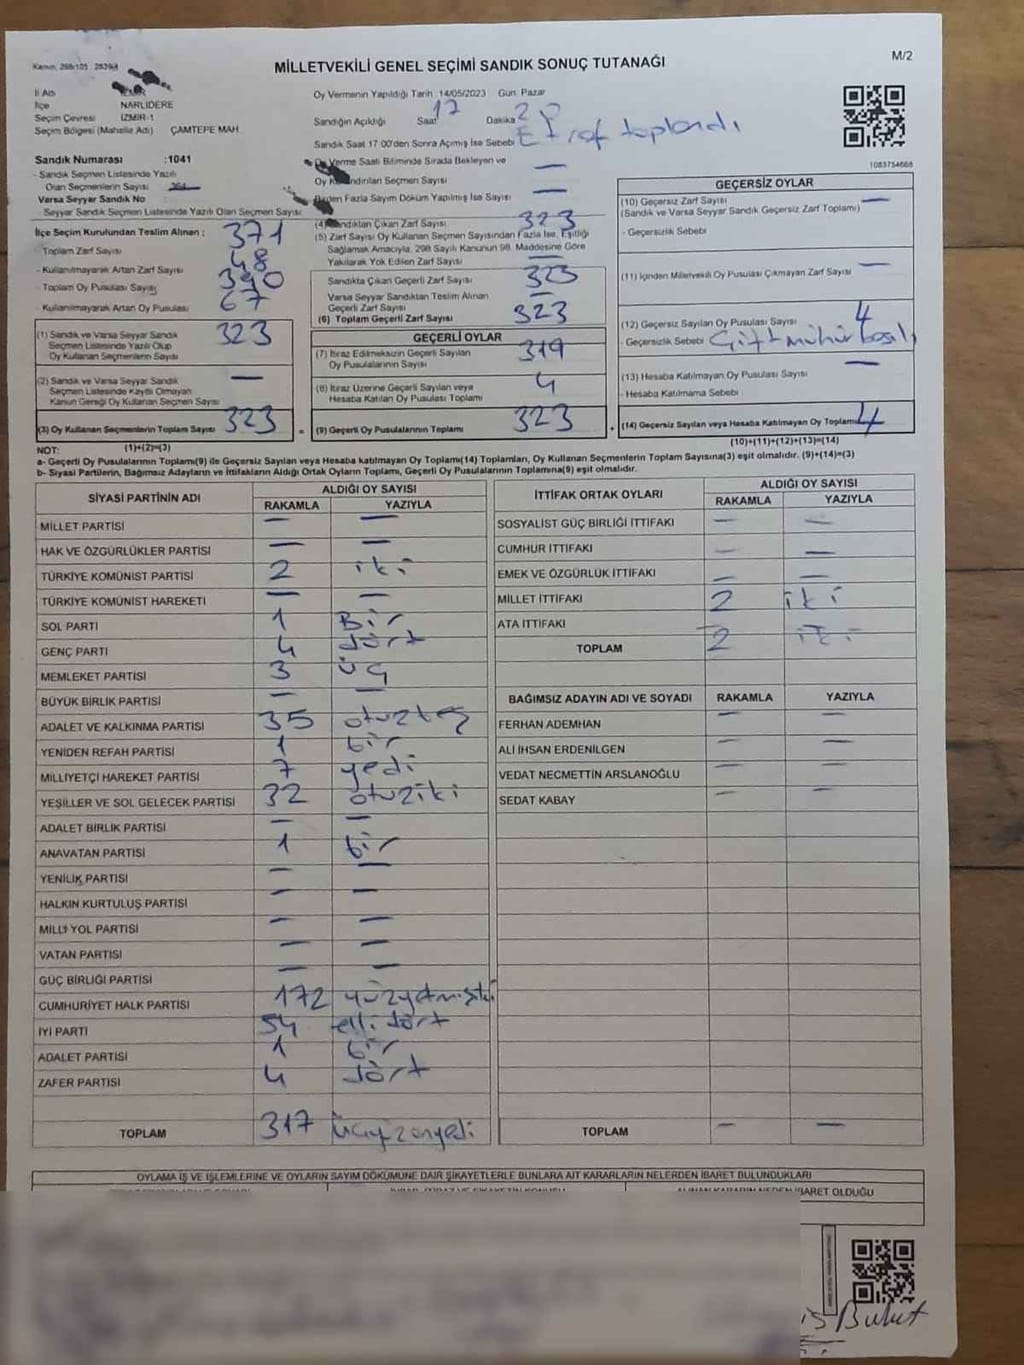 M/2
Kanun: 298/105 2839/4
MİLLETVEKİLİ GENEL SEÇİMİ SANDIK SONUÇ TUTANAĞI
İl Adı İZMİR
İlçe NARLIDERE
Seçim Çevresi İZMİR-1
Seçim Bölgesi (Mahalle Adı) ÇAMTEPE MAH.
Sandık Numarası :1041
- Sandık Seçmen Listesinde Yazılı
Olan Seçmenlerin Sayısı
Varsa Seyyar Sandık No
Seyyar Sandık Seçmen Listesinde Yazılı Olan Seçmen Sayısı
İlçe Seçim Kurulundan Teslim Alınan ;
Toplam Zarf Sayısı 371
- Kullanılmayarak Artan Zarf Sayısı 48
- Toplam Oy Pusulası Sayısı 390
- Kullanılmayarak Artan Oy Pusulası 67
(1) Sandık ve Varsa Seyyar Sandık 323
Seçmen Listesinde Yazılı Olup
Oy Kullanan Seçmenlerin Sayısı
(2) Sandık ve Varsa Seyyar Sandık —
Seçmen Listesinde Kayıtlı Olmayan
Kanun Gereği Oy Kullanan Seçmen Sayısı
(3) Oy Kullanan Seçmenlerin Toplam Sayısı 323
Oy Vermenin Yapıldığı Tarih :14/05/2023 Gün: Pazar
Sandığın Açıldığı Saat 17 Dakika
Sandık Saat 17:00'den Sonra Açılmış İse Sebebi toplandı
Oy Verme Saati Bitiminde Sırada Bekleyen ve —
Oy Kullandırılan Seçmen Sayısı
Birden Fazla Sayım Döküm Yapılmış İse Sayısı —
(4) Sandıktan Çıkan Zarf Sayısı 323
(5) Zarf Sayısı Oy Kullanan Seçmen Sayısından Fazla İse, Eşitliği
Sağlamak Amacıyla, 298 Sayılı Kanunun 98. Maddesine Göre
Yakılarak Yok Edilen Zarf Sayısı —
Sandıkta Çıkan Geçerli Zarf Sayısı 323
Varsa Seyyar Sandıktan Teslim Alınan
Geçerli Zarf Sayısı —
(6) Toplam Geçerli Zarf Sayısı 323
GEÇERLİ OYLAR
(7) İtiraz Edilmeksizin Geçerli Sayılan 319
Oy Pusulalarının Sayısı
(8) İtiraz Üzerine Geçerli Sayılan veya 4
Hesaba Katılan Oy Pusulası Toplamı
= (9) Geçerli Oy Pusulalarının Toplamı 323
1083754668
GEÇERSİZ OYLAR
(10) Geçersiz Zarf Sayısı —
(Sandık ve Varsa Seyyar Sandık Geçersiz Zarf Toplamı)
- Geçersizlik Sebebi
(11) İçinden Milletvekili Oy Pusulası Çıkmayan Zarf Sayısı —
(12) Geçersiz Sayılan Oy Pusulası Sayısı 4
- Geçersizlik Sebebi Çift mühür basılı
(13) Hesaba Katılmayan Oy Pusulası Sayısı —
- Hesaba Katılmama Sebebi
+ (14) Geçersiz Sayılan veya Hesaba Katılmayan Oy Toplamı 4
NOT: (1)+(2)=(3) (10)+(11)+(12)+(13)=(14)
a- Geçerli Oy Pusulalarının Toplamı(9) ile Geçersiz Sayılan veya Hesaba katılmayan Oy Toplamı(14) Toplamları, Oy Kullanan Seçmenlerin Toplam Sayısına(3) eşit olmalıdır. (9)+(14)=(3)
b- Siyasi Partilerin, Bağımsız Adayların ve İttifakların Aldığı Ortak Oyların Toplamı, Geçerli Oy Pusulalarının Toplamına(9) eşit olmalıdır.
SİYASİ PARTİNİN ADI ALDIĞI OY SAYISI
RAKAMLA YAZIYLA
MİLLET PARTİSİ — —
HAK VE ÖZGÜRLÜKLER PARTİSİ — —
TÜRKİYE KOMÜNİST PARTİSİ 2 iki
TÜRKİYE KOMÜNİST HAREKETİ — —
SOL PARTİ 1 Bir
GENÇ PARTİ 4 dört
MEMLEKET PARTİSİ 3 üç
BÜYÜK BİRLİK PARTİSİ — —
ADALET VE KALKINMA PARTİSİ 35 otuzbeş
YENİDEN REFAH PARTİSİ 1 bir
MİLLİYETÇİ HAREKET PARTİSİ 7 yedi
YEŞİLLER VE SOL GELECEK PARTİSİ 32 otuziki
ADALET BİRLİK PARTİSİ — —
ANAVATAN PARTİSİ 1 bir
YENİLİK PARTİSİ — —
HALKIN KURTULUŞ PARTİSİ — —
MİLLİ YOL PARTİSİ — —
VATAN PARTİSİ — —
GÜÇ BİRLİĞİ PARTİSİ — —
CUMHURİYET HALK PARTİSİ 172 yüzyetmişiki
İYİ PARTİ 54 elli dört
ADALET PARTİSİ 1 bir
ZAFER PARTİSİ 4 dört
TOPLAM 317 üçyüzonyedi
İTTİFAK ORTAK OYLARI ALDIĞI OY SAYISI
RAKAMLA YAZIYLA
SOSYALİST GÜÇ BİRLİĞİ İTTİFAKI — —
CUMHUR İTTİFAKI — —
EMEK VE ÖZGÜRLÜK İTTİFAKI — —
MİLLET İTTİFAKI 2 iki
ATA İTTİFAKI —
TOPLAM 2 iki
BAĞIMSIZ ADAYIN ADI VE SOYADI RAKAMLA YAZIYLA
FERHAN ADEMHAN — —
ALİ İHSAN ERDENİLGEN — —
VEDAT NECMETTİN ARSLANOĞLU — —
SEDAT KABAY — —
TOPLAM — —
OYLAMA İŞ VE İŞLEMLERİNE VE OYLARIN SAYIM DÖKÜMÜNE DAİR ŞİKAYETLERLE BUNLARA AİT KARARLARIN NELERDEN İBARET BULUNDUKLARI
ALINAN KARARIN NEDEN İBARET OLDUĞU
Bulut